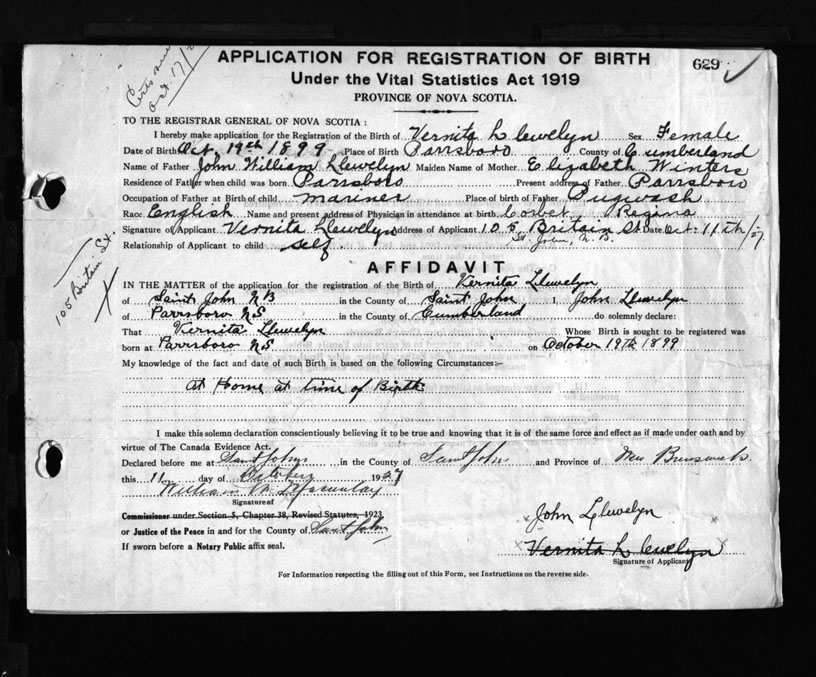 APPLICATION FOR REGISTRATION OF BIRTH
629
Under the Vital Statistics Act 1919
PROVINCE OF NOVA SCOTIA.
TO THE REGISTRAR GENERAL OF NOVA SCOTIA :
I hereby make application for the Registration of the Birth of Vernita Llewelyn Sex Female
Date of Birth Oct. 19th 1899 Place of Birth Parrsboro County of Cumberland
Name of Father John William Llewelyn Maiden Name of Mother Elizabeth Winters
Residence of Father when child was born Parrsboro Present address of Father Parrsboro
Occupation of Father at Birth of child mariner Place of birth of Father Pugwash
Race English Name and present address of Physician in attendance at birth Corbet, Regina
Signature of Applicant Vernita Llewelyn Address of Applicant 105 Britain St Date Oct. 11th/27
St. John, N. B.
Relationship of Applicant to child self.
105 Britain St.
AFFIDAVIT
IN THE MATTER of the application for the registration of the Birth of Vernita Llewelyn
of Saint John NB in the County of Saint John I, John Llewelyn
of Parrsboro NS in the County of Cumberland do solemnly declare:
That Vernita Llewelyn Whose Birth is sought to be registered was
born at Parrsboro NS on October 19th 1899
My knowledge of the fact and date of such Birth is based on the following Circumstances:—
At Home at time of Birth
I make this solemn declaration conscientiously believing it to be true and knowing that it is of the same force and effect as if made under oath and by
virtue of The Canada Evidence Act.
Declared before me at Saint John in the County of Saint John and Province of New Brunswick
this 11 day of October 1927
William
Signature of
Commissioner under Section 5, Chapter 38, Revised Statutes, 1923
John Llewelyn
or Justice of the Peace in and for the County of Saint John
If sworn before a Notary Public affix seal.
Vernita Llewelyn
Signature of Applicant
For Information respecting the filling out of this Form, see Instructions on the reverse side.